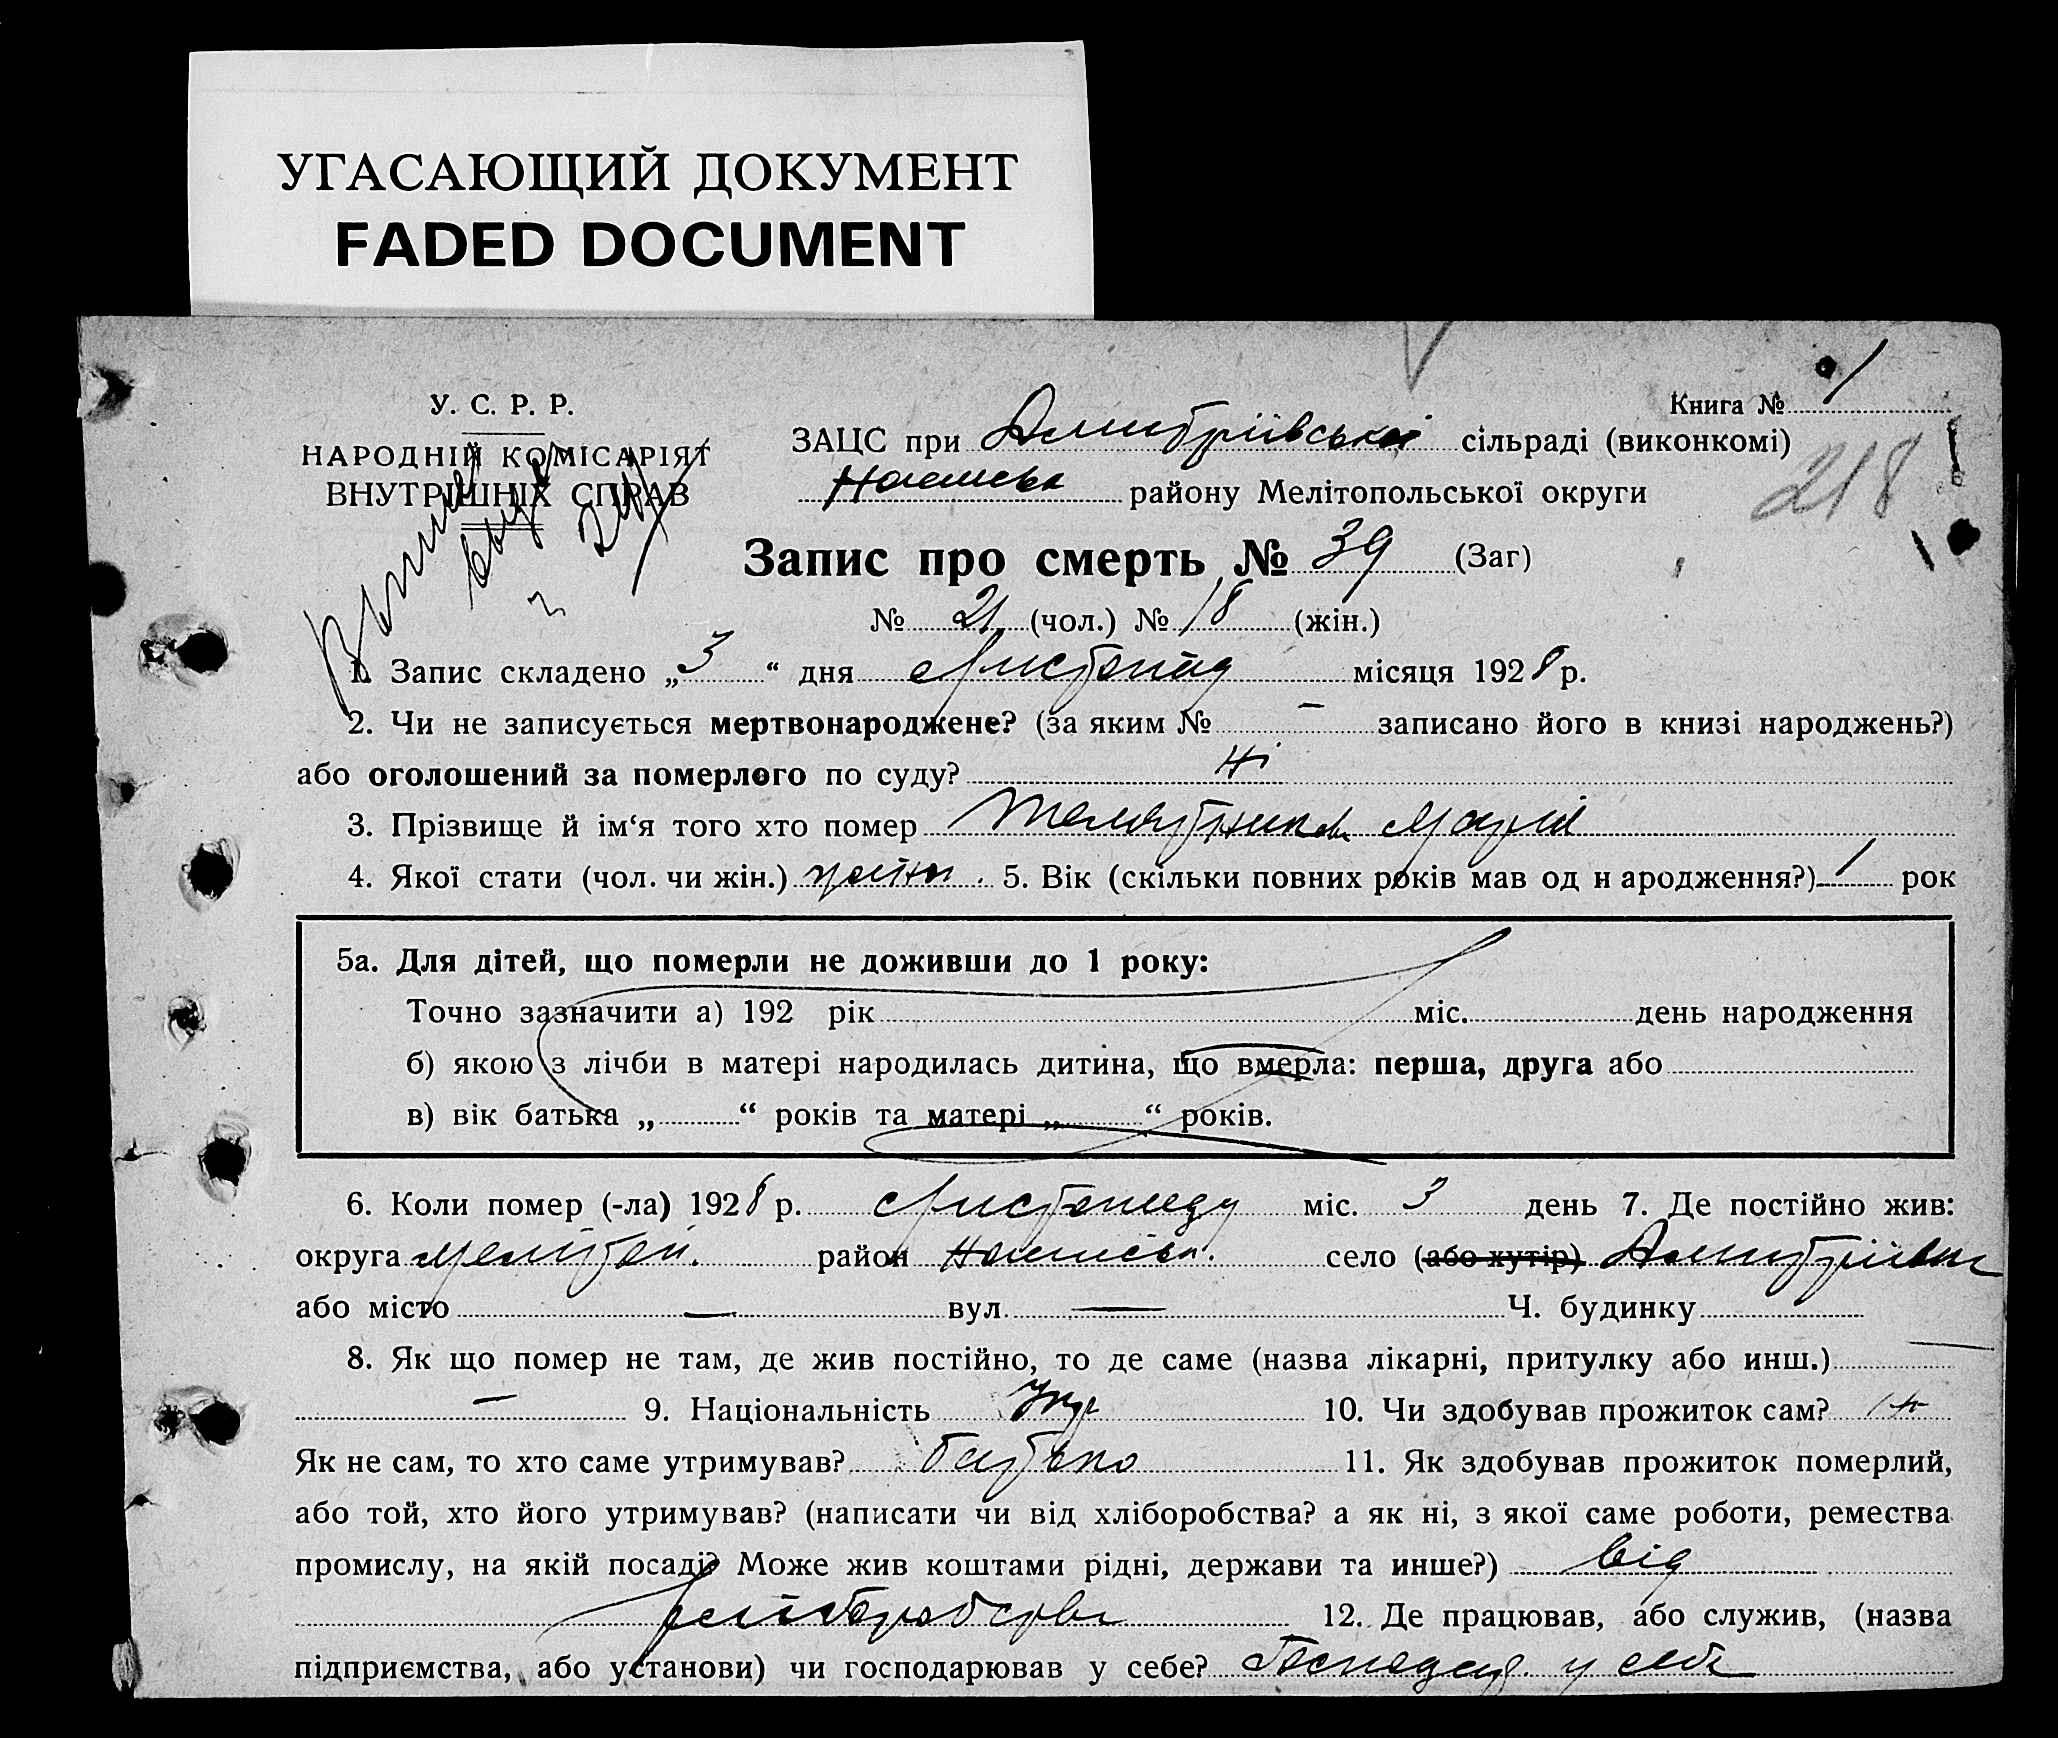 УГАСАЮЩИЙ ДОКУМЕНТ
FADED DOCUMENT
У. С. Р. Р.
НАРОДНІЙ КОМІСАРІЯТ
ВНУТРІШНІХ СПРАВ
Книга № 1
ЗАЦС при Дмитріївської сільраді (виконкомі)
району Мелітопольської округи
218
Запис про смерть № 39 (Заг)
№ 21 (чол.) № 18 (жін.)
1. Запис складено „3“ дня Листопад місяця 1928 р.
2. Чи не записується мертвонароджене? (за яким № – записано його в книзі народжень?)
або оголошений за померлого по суду? Ні
3. Прізвище й ім‘я того хто помер Марія
4. Якої стати (чол. чи жін.) жіно. 5. Вік (скільки повних років мав од н ародження?) 1 рок
5а. Для дітей, що померли не доживши до 1 року:
Точно зазначити а) 192 рік міс. день народження
б) якою з лічби в матері народилась дитина, що вмерла: перша, друга або
в) вік батька „ “ років та матері „ “ років.
6. Коли помер (-ла) 1928 р. Листопаду міс. 3 день 7. Де постійно жив:
округа Меліто́п. район село (або хутір) Дмитріївка
або місто — вул. — Ч. будинку
8. Як що помер не там, де жив постійно, то де саме (назва лікарні, притулку або инш.) —
– 9. Національність Укр 10. Чи здобував прожиток сам? ні
Як не сам, то хто саме утримував? батько 11. Як здобував прожиток померлий,
або той, хто його утримував? (написати чи від хліборобства? а як ні, з якої саме роботи, ремества
промислу, на якій посаді? Може жив коштами рідні, держави та инше?) від
хліборобства 12. Де працював, або служив, (назва
підприємства, або установи) чи господарював у себе? Господар у себе